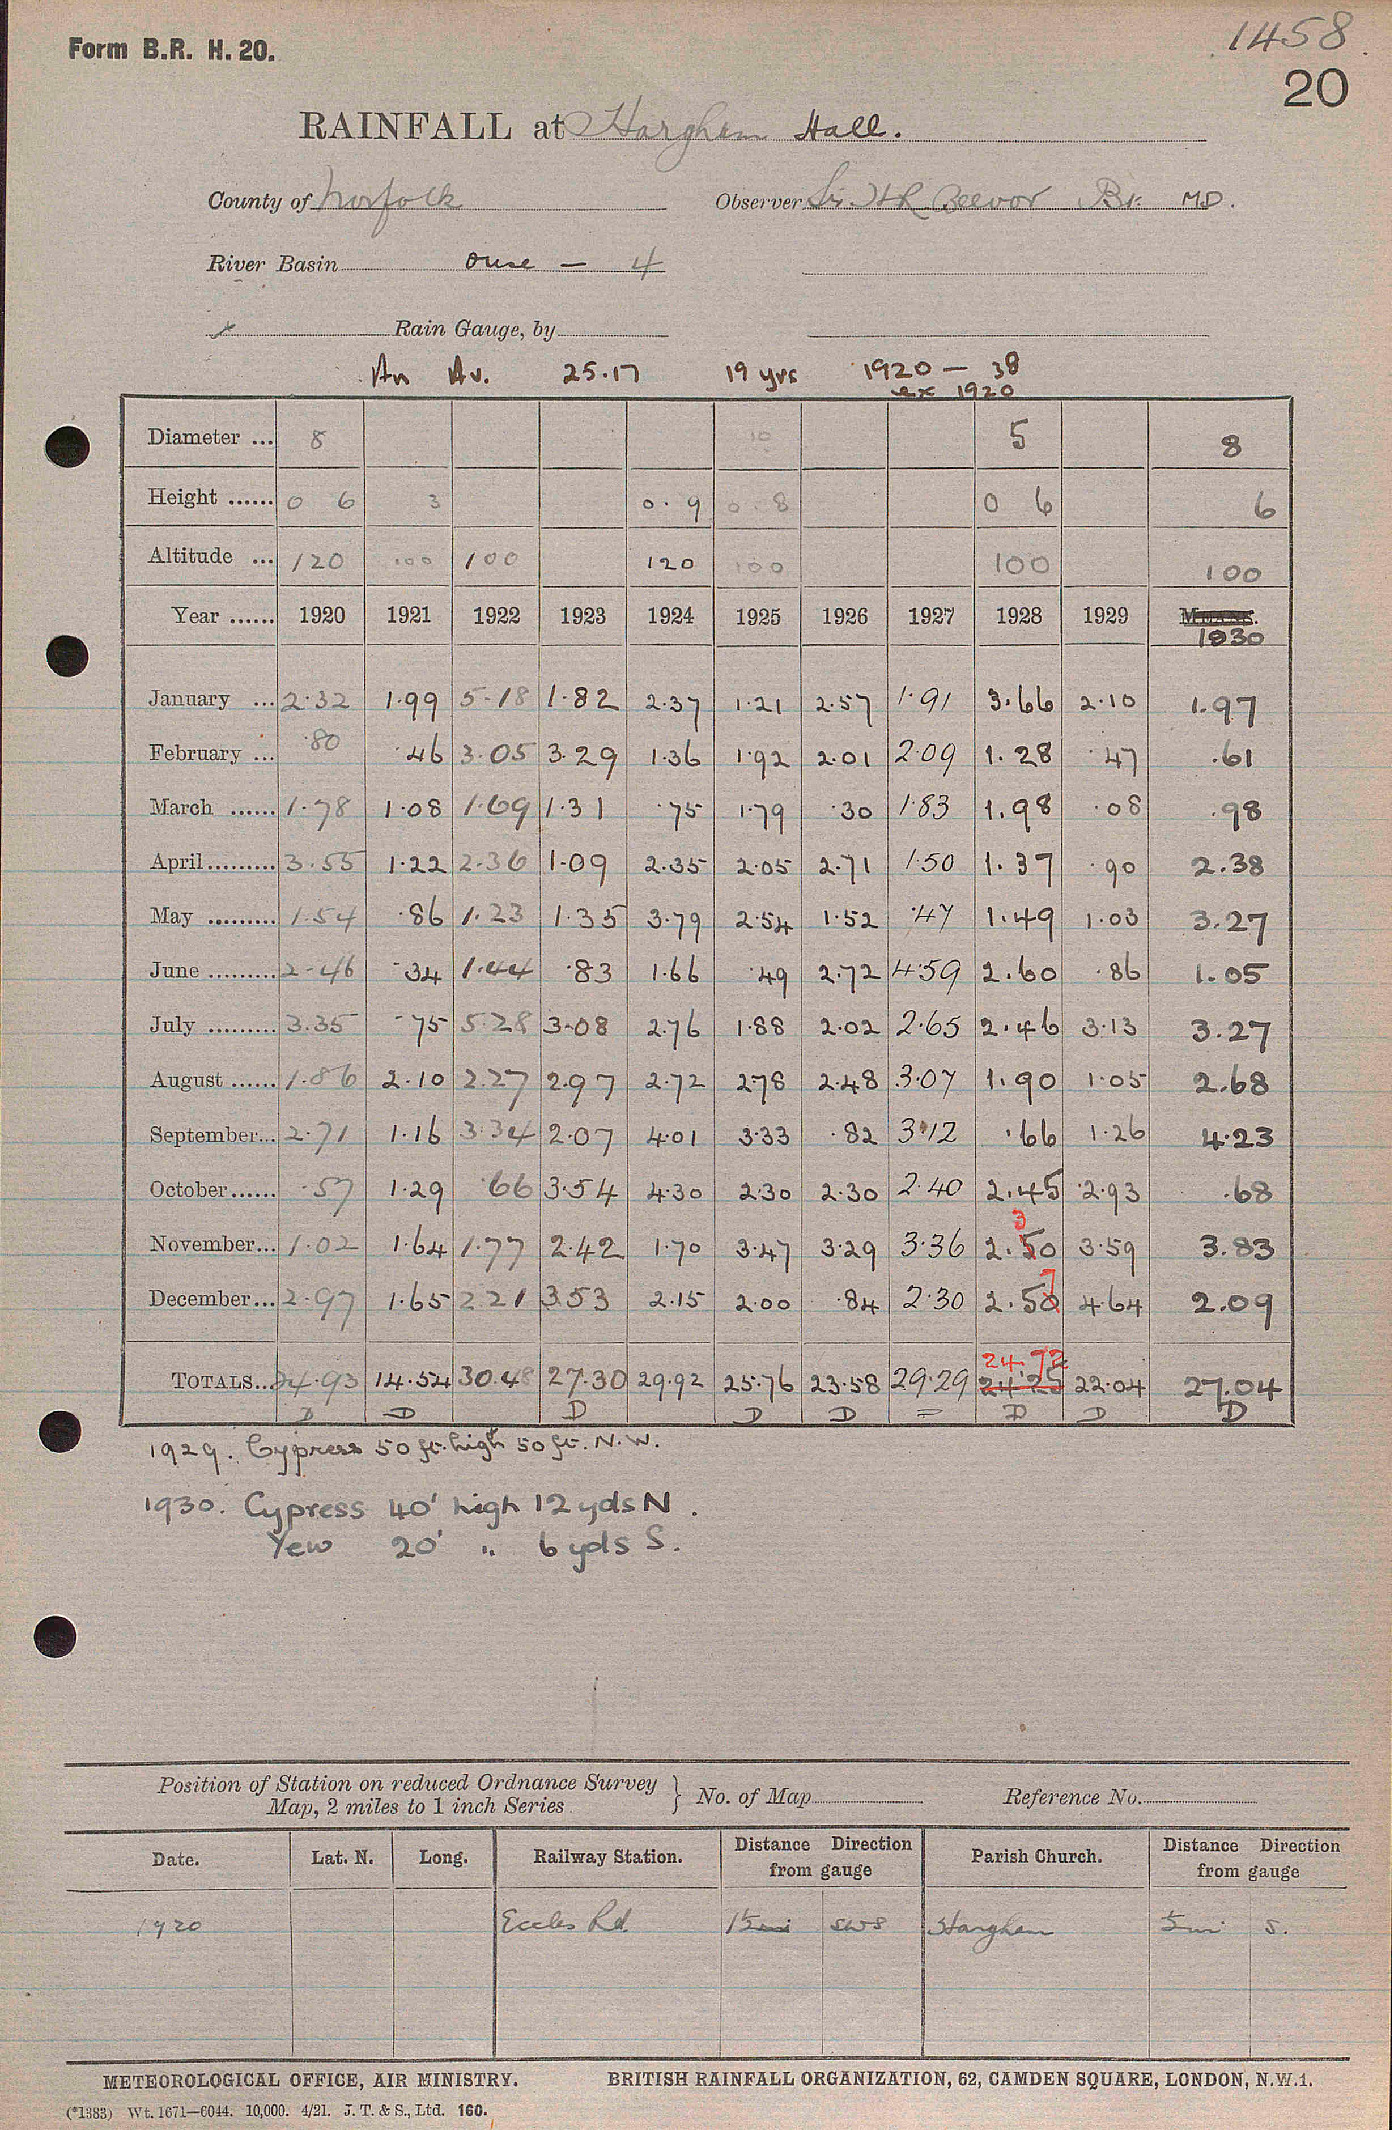 Form B.R. H. 20.
1458
20
RAINFALL at Hargham Hall.
County of Norfolk Observer Sir H R Beevor Bt. MD.
River Basin Ouse — 4
Rain Gauge, by
An Av. 25.17 19 yrs 1920 — 38
ex 1920
Diameter ... 8 10 5 8
Height ...... 0 6 3 0.9 0.8 0 6 6
Altitude ... 120 100 100 120 100 100 100
Year ...... 1920 1921 1922 1923 1924 1925 1926 1927 1928 1929 MEANS. 1930
January ... 2.32 1.99 5.18 1.82 2.37 1.21 2.57 1.91 3.66 2.10 1.97
February ... .80 .46 3.05 3.29 1.36 1.92 2.01 2.09 1.28 .47 .61
March ...... 1.78 1.08 1.69 1.31 .75 1.79 .30 1.83 1.98 .08 .98
April ......... 3.55 1.22 2.36 1.09 2.35 2.05 2.71 1.50 1.37 .90 2.38
May ......... 1.54 .86 1.23 1.35 3.79 2.54 1.52 .47 1.49 1.03 3.27
June ......... 2.46 .34 1.44 .83 1.66 .49 2.72 4.59 2.60 .86 1.05
July ......... 3.35 .75 5.28 3.08 2.76 1.88 2.02 2.65 2.46 3.13 3.27
August ...... 1.86 2.10 2.27 2.97 2.72 2.78 2.48 3.07 1.90 1.05 2.68
September... 2.71 1.16 3.34 2.07 4.01 3.33 .82 3.12 .66 1.26 4.23
October ...... .57 1.29 .66 3.54 4.30 2.30 2.30 2.40 2.45 2.93 .68
3
November... 1.02 1.64 1.77 2.42 1.70 3.47 3.29 3.36 2.50 3.59 3.83
7
December... 2.97 1.65 2.21 3.53 2.15 2.00 .84 2.30 2.50 4.64 2.09
24.72
TOTALS... 24.93 14.54 30.48 27.30 29.92 25.76 23.58 29.29 24.25 22.04 27.04
D D D D D = D D D
1929. Cypress 50 ft. high 50 ft. N.W.
1930. Cypress 40' high 12 yds N.
Yew 20' " 6 yds S.
Position of Station on reduced Ordnance Survey
Map, 2 miles to 1 inch Series. } No. of Map Reference No.
Date. Lat. N. Long. Railway Station. Distance Direction from gauge Parish Church. Distance Direction from gauge
1920 Eccles Rd. Hargham S.
METEOROLOGICAL OFFICE, AIR MINISTRY. BRITISH RAINFALL ORGANIZATION, 62, CAMDEN SQUARE, LONDON, N.W.1.
(*1383) Wt. 1671—6044. 10,000. 4/21. J. T. & S., Ltd. 160.